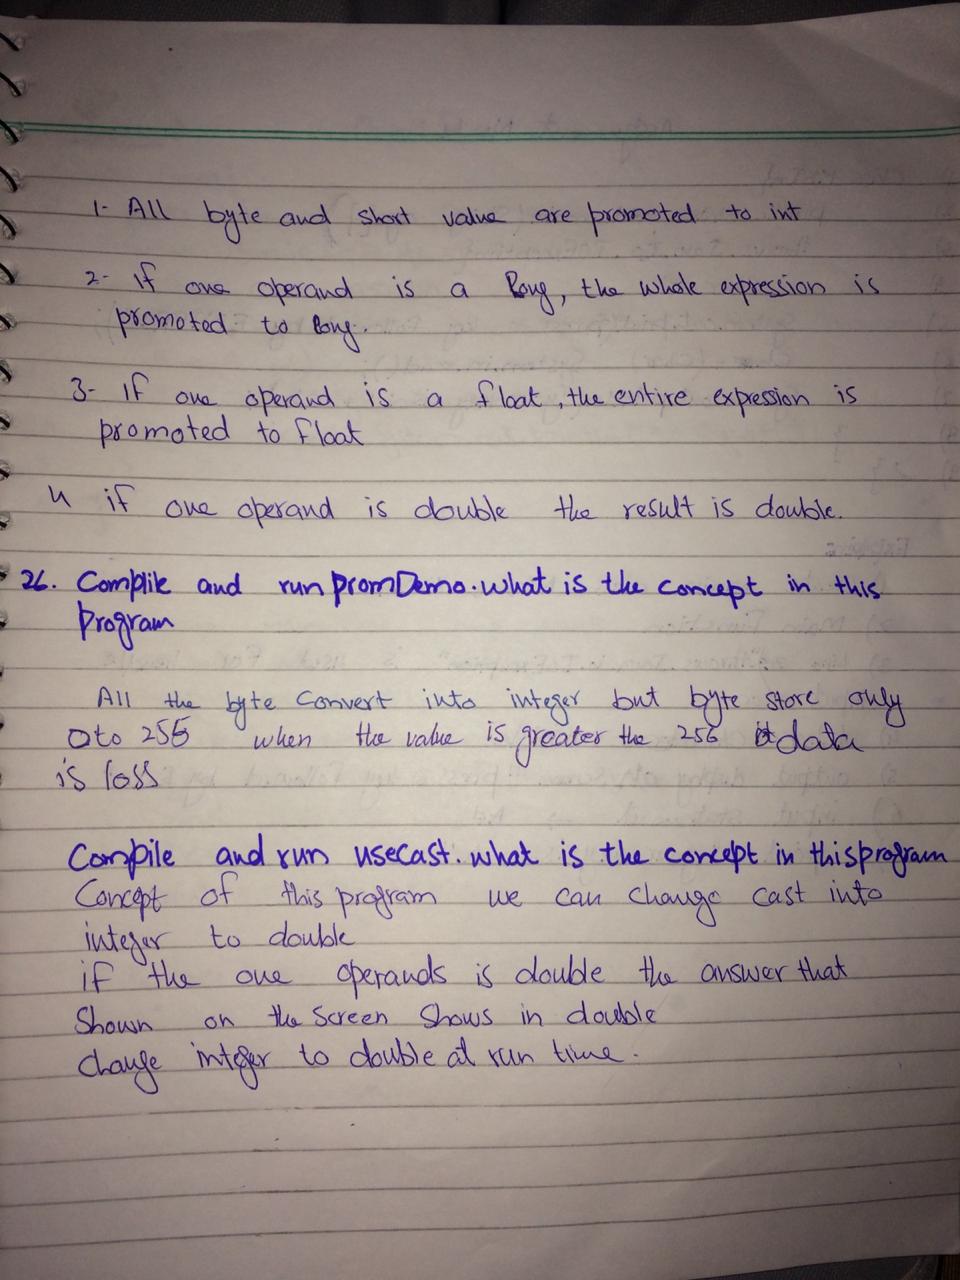 1- All byte and short value are promoted to int
2- if one operand is a long, the whole expression is
promoted to long.
3- if one operand is a float, the entire expression is
promoted to float
4 if one operand is double the result is double.
26. Complie and run promDemo. what is the concept in this
program
All the byte convert into integer but byte store only
0 to 255 when the value is greater the 256 data
is loss
Compile and run usecast. what is the concept in this program
Concept of this program we can change cast into
integer to double
if the one operands is double the answer that
Shown on the screen shows in double
change integer to double at run time.